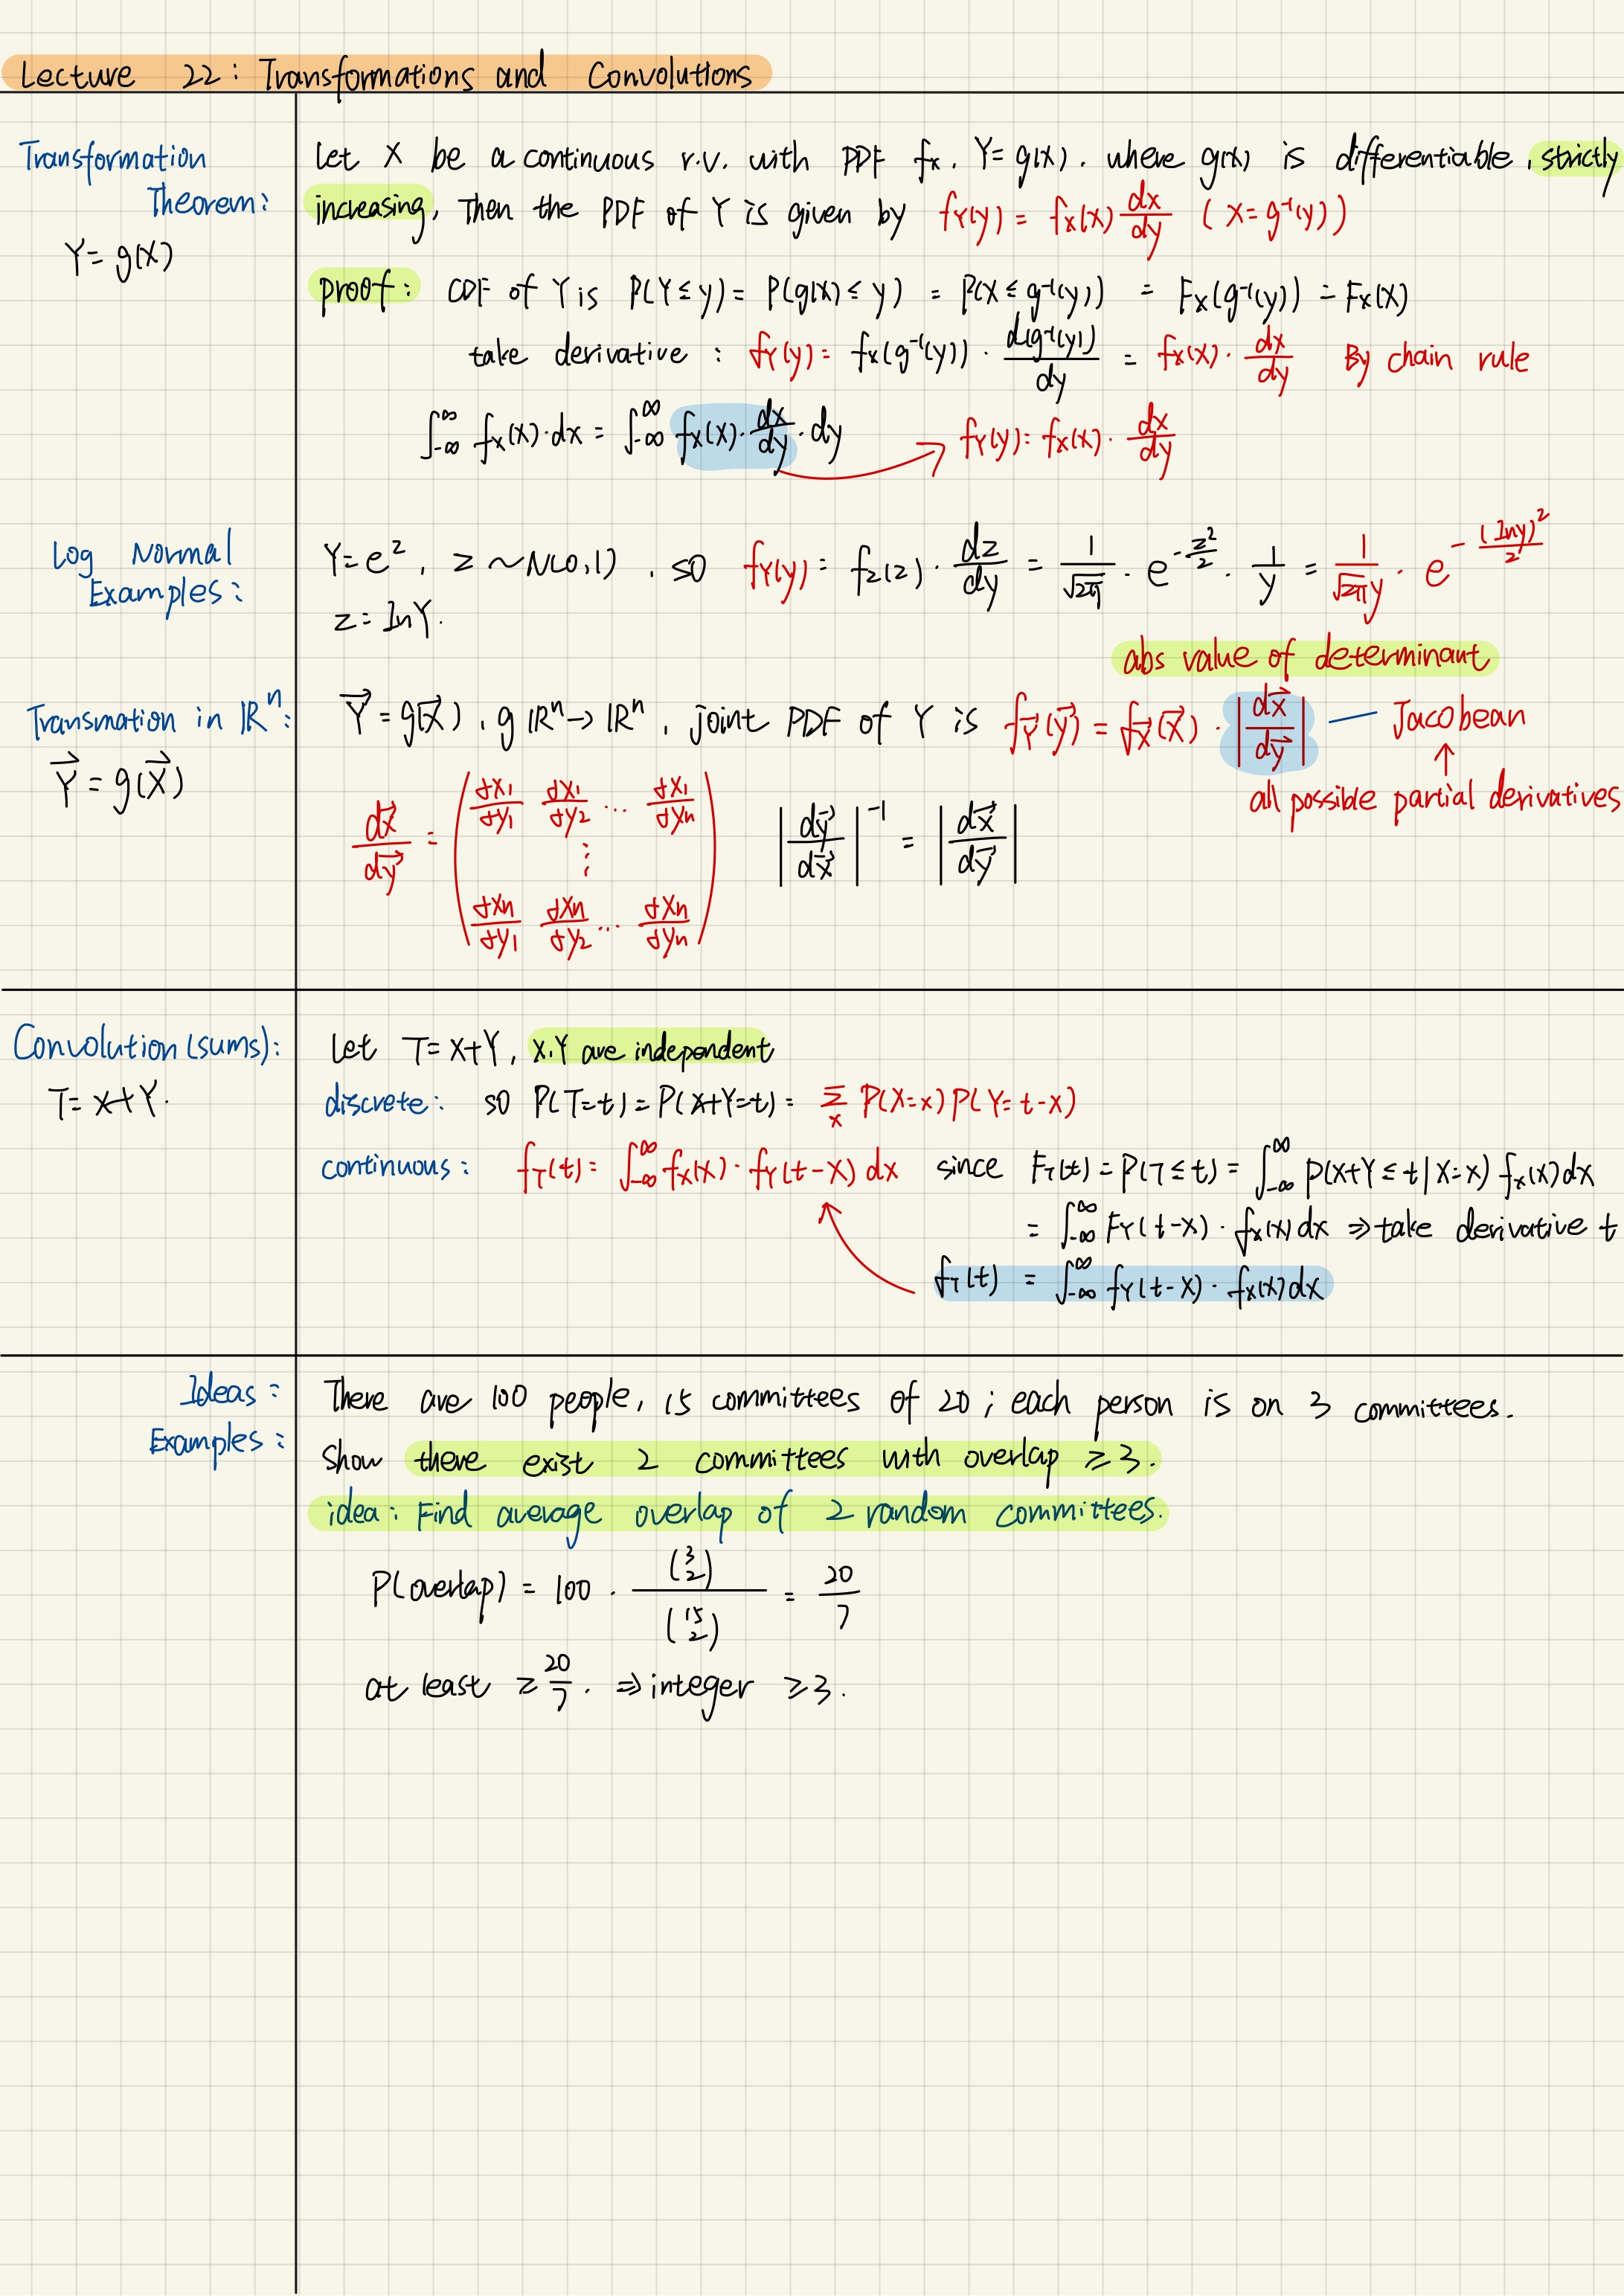 Lecture 22: Transformations and Convolutions
Transformation Theorem:
Y = g(X)
Let X be a continuous r.v. with PDF fx. Y=g(x). where g(x) is differentiable, strictly
increasing, Then the PDF of Y is given by fY(y) = fx(x) dx/dy (X=g⁻¹(y))
proof: CDF of Y is P(Y≤y) = P(g(x)≤y) = P(X≤g⁻¹(y)) = Fx(g⁻¹(y)) = Fx(X)
take derivative: fY(y) = fx(g⁻¹(y)) · d(g⁻¹(y))/dy = fx(x) · dx/dy By chain rule
∫_{-∞}^{∞} fx(x)·dx = ∫_{-∞}^{∞} fx(x)·dx/dy·dy → fY(y) = fx(x)·dx/dy
Log Normal Examples:
Y=e^z, z~N(0,1), so fY(y) = fz(z)·dz/dy = 1/√2π · e^{-z²/2} · 1/y = 1/(√2π y) · e^{-(lny)²/2}
z=lnY.
abs value of determinant
Transmation in ℝⁿ:
Y⃗ = g(X⃗)
Y⃗ = g(X⃗), g ℝⁿ→ℝⁿ, joint PDF of Y is fY⃗(y⃗) = fX⃗(x⃗) · |dx⃗/dy⃗| — Jacobean
↑
all possible partial derivatives
dx⃗/dy⃗ = ( ∂x1/∂y1 ∂x1/∂y2 ... ∂x1/∂yn
⋮
∂xn/∂y1 ∂xn/∂y2 ... ∂xn/∂yn )
|dy⃗/dx⃗|⁻¹ = |dx⃗/dy⃗|
Convolution (sums):
T=X+Y.
Let T=X+Y, X.Y are independent
discrete: so P(T=t) = P(X+Y=t) = Σ_x P(X=x)P(Y=t-x)
continuous: fT(t) = ∫_{-∞}^{∞} fx(x)·fY(t-x) dx since FT(t) = P(T≤t) = ∫_{-∞}^{∞} P(X+Y≤t|X=x) fx(x)dx
= ∫_{-∞}^{∞} FY(t-x)·fx(x)dx ⇒ take derivative t
fT(t) = ∫_{-∞}^{∞} fY(t-x)·fx(x)dx
Ideas:
Examples:
There are 100 people, 15 committees of 20; each person is on 3 committees.
Show there exist 2 committees with overlap ≥3.
idea: Find average overlap of 2 random committees.
P(overlap) = 100 · (3 2)/(15 2) = 20/7
at least ≥ 20/7. ⇒ integer ≥3.